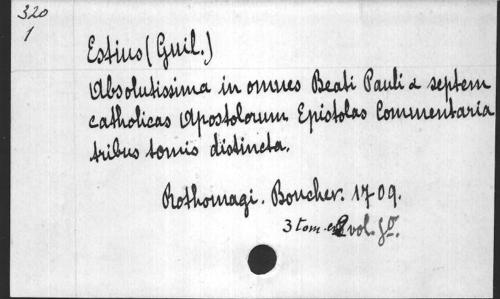 320
1
Estius (Guil.)
Absolutissima in omnes Beati Pauli & septem
catholicas Apostolorum Epistolas Commentaria
tribus tomis distincta.
Rothomagi. Boucher. 1709.
3 tom. en 2 vol. fo.